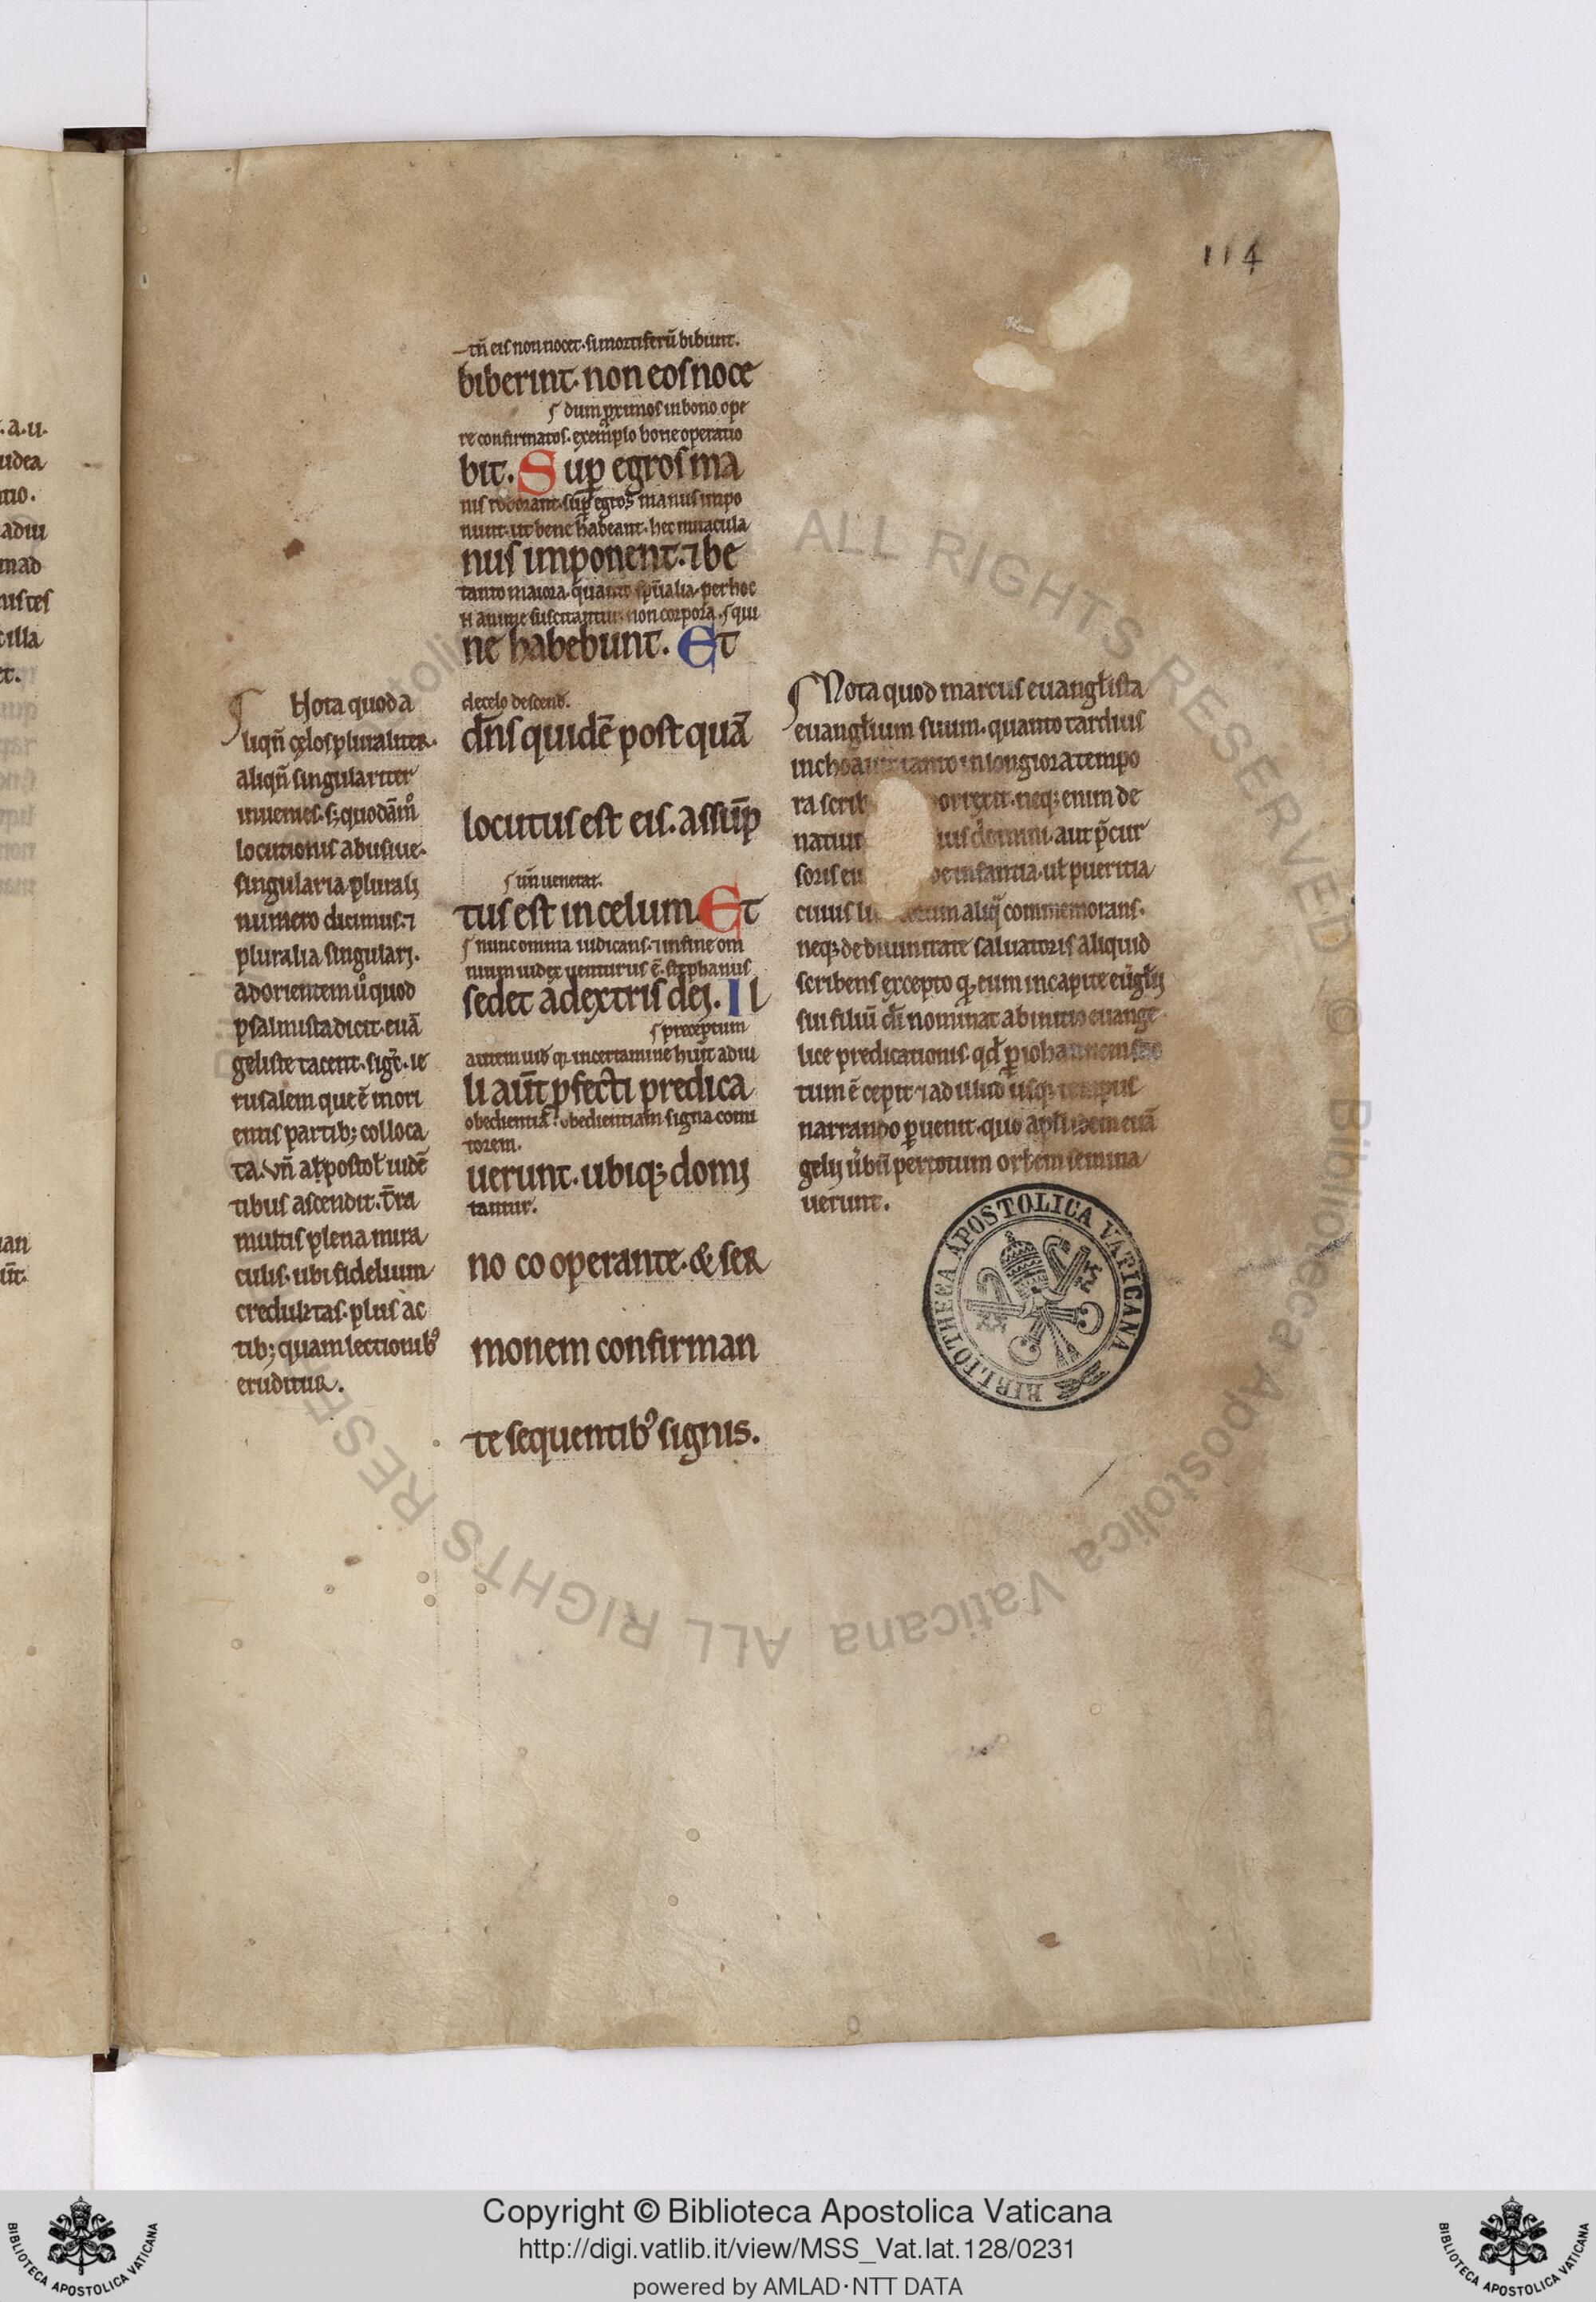 114
tn̄ eis non nocet. si mortiferū bibunt.
biberint. non eos noce
dum ꝓximos in bono ope
re confirmatos. exemplo bone operatio
bit. Sup egros ma
nis roborant. sup egros manus impo
nunt. ut bene habeant. hec miracula
nus imponent. ⁊ be
tanto maiora. quanto sp̄ualia. per hec
anime suscitantur. non corpora. qui
ne habebunt. Et
de celo descend.
dn̄s quidē post quā
locutus est eis. assūp
un̄ venerat.
tus est in celum. Et
nunc omnia iudicans. ⁊ in fine om
nium iudex uenturus ē. stephanus
sedet a dextris dei. Il
preceptum
autem uid. q. in certamine hūit adiu
li aūt ꝓfecti predica
obedientiā. obedientiam signa comi
torem.
uerunt. ubiqꝫ domi
tantur.
no co operante. & ser
monem confirman
te sequentibꝰ signis.
Nota quod a
liqn̄ celos pluraliter.
aliqn̄ singulariter
inuenies. sꝫ quodām̊
locutionis abusiue.
singularia plurali
numero dicimus. ⁊
pluralia singulari.
ad orientem ů quod
psalmista dicit. euā
geliste tacent. sigt̄. ie
rusalem que ē in ori
entis partibꝫ colloca
ta. vn̄ apostoł uidē
tibus ascendit. t̄ra
multis plena mira
culis. ubi fidelium
credulitas. plus ac
tibꝫ quam lectionibꝰ
eruditur.
Nota quod marcus euangl̄ista
euangl̄ium suum. quanto tardius
inchoauit tanto in longiora tempo
ra scrib orrexit. neqꝫ enim de
natiui ius domini. aut p̄cur
soris eu de infantia. ul̄ pueritia
cuius li aliq̄ commemorans.
neqꝫ de diuinitate saluatoris aliquid
scribens excepto q. eum in capite eūgl̄ij
sui filiū di nominat ab initio euange
lice predicationis. qd̄ ꝑ iohannem
tum ē cepit ⁊ ad illud usqꝫ tempus
narrando ꝑuenit. quo apl̄i idem euā
gelij ūbū per totum orbem semina
uerunt.
BIBLIOTHECA APOSTOLICA VATICANA
ALL RIGHTS RESERVED © Biblioteca Apostolica Vaticana ALL RIGHTS RESE
Copyright © Biblioteca Apostolica Vaticana
http://digi.vatlib.it/view/MSS_Vat.lat.128/0231
powered by AMLAD·NTT DATA
BIBLIOTECA APOSTOLICA VATICANA
BIBLIOTECA APOSTOLICA VATICANA